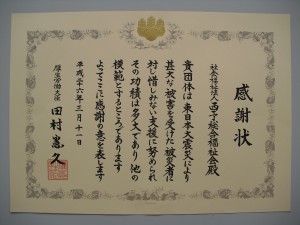 感謝状
社会福祉法人西予総合福祉会殿
貴団体は東日本大震災により
甚大な被害を受けた被災者に
対し惜しみない支援に努められ
その功績は多大であり他の
模範とするところであります
よってここに感謝の意を表します
平成二十六年三月十一日
厚生労働大臣
田村憲久